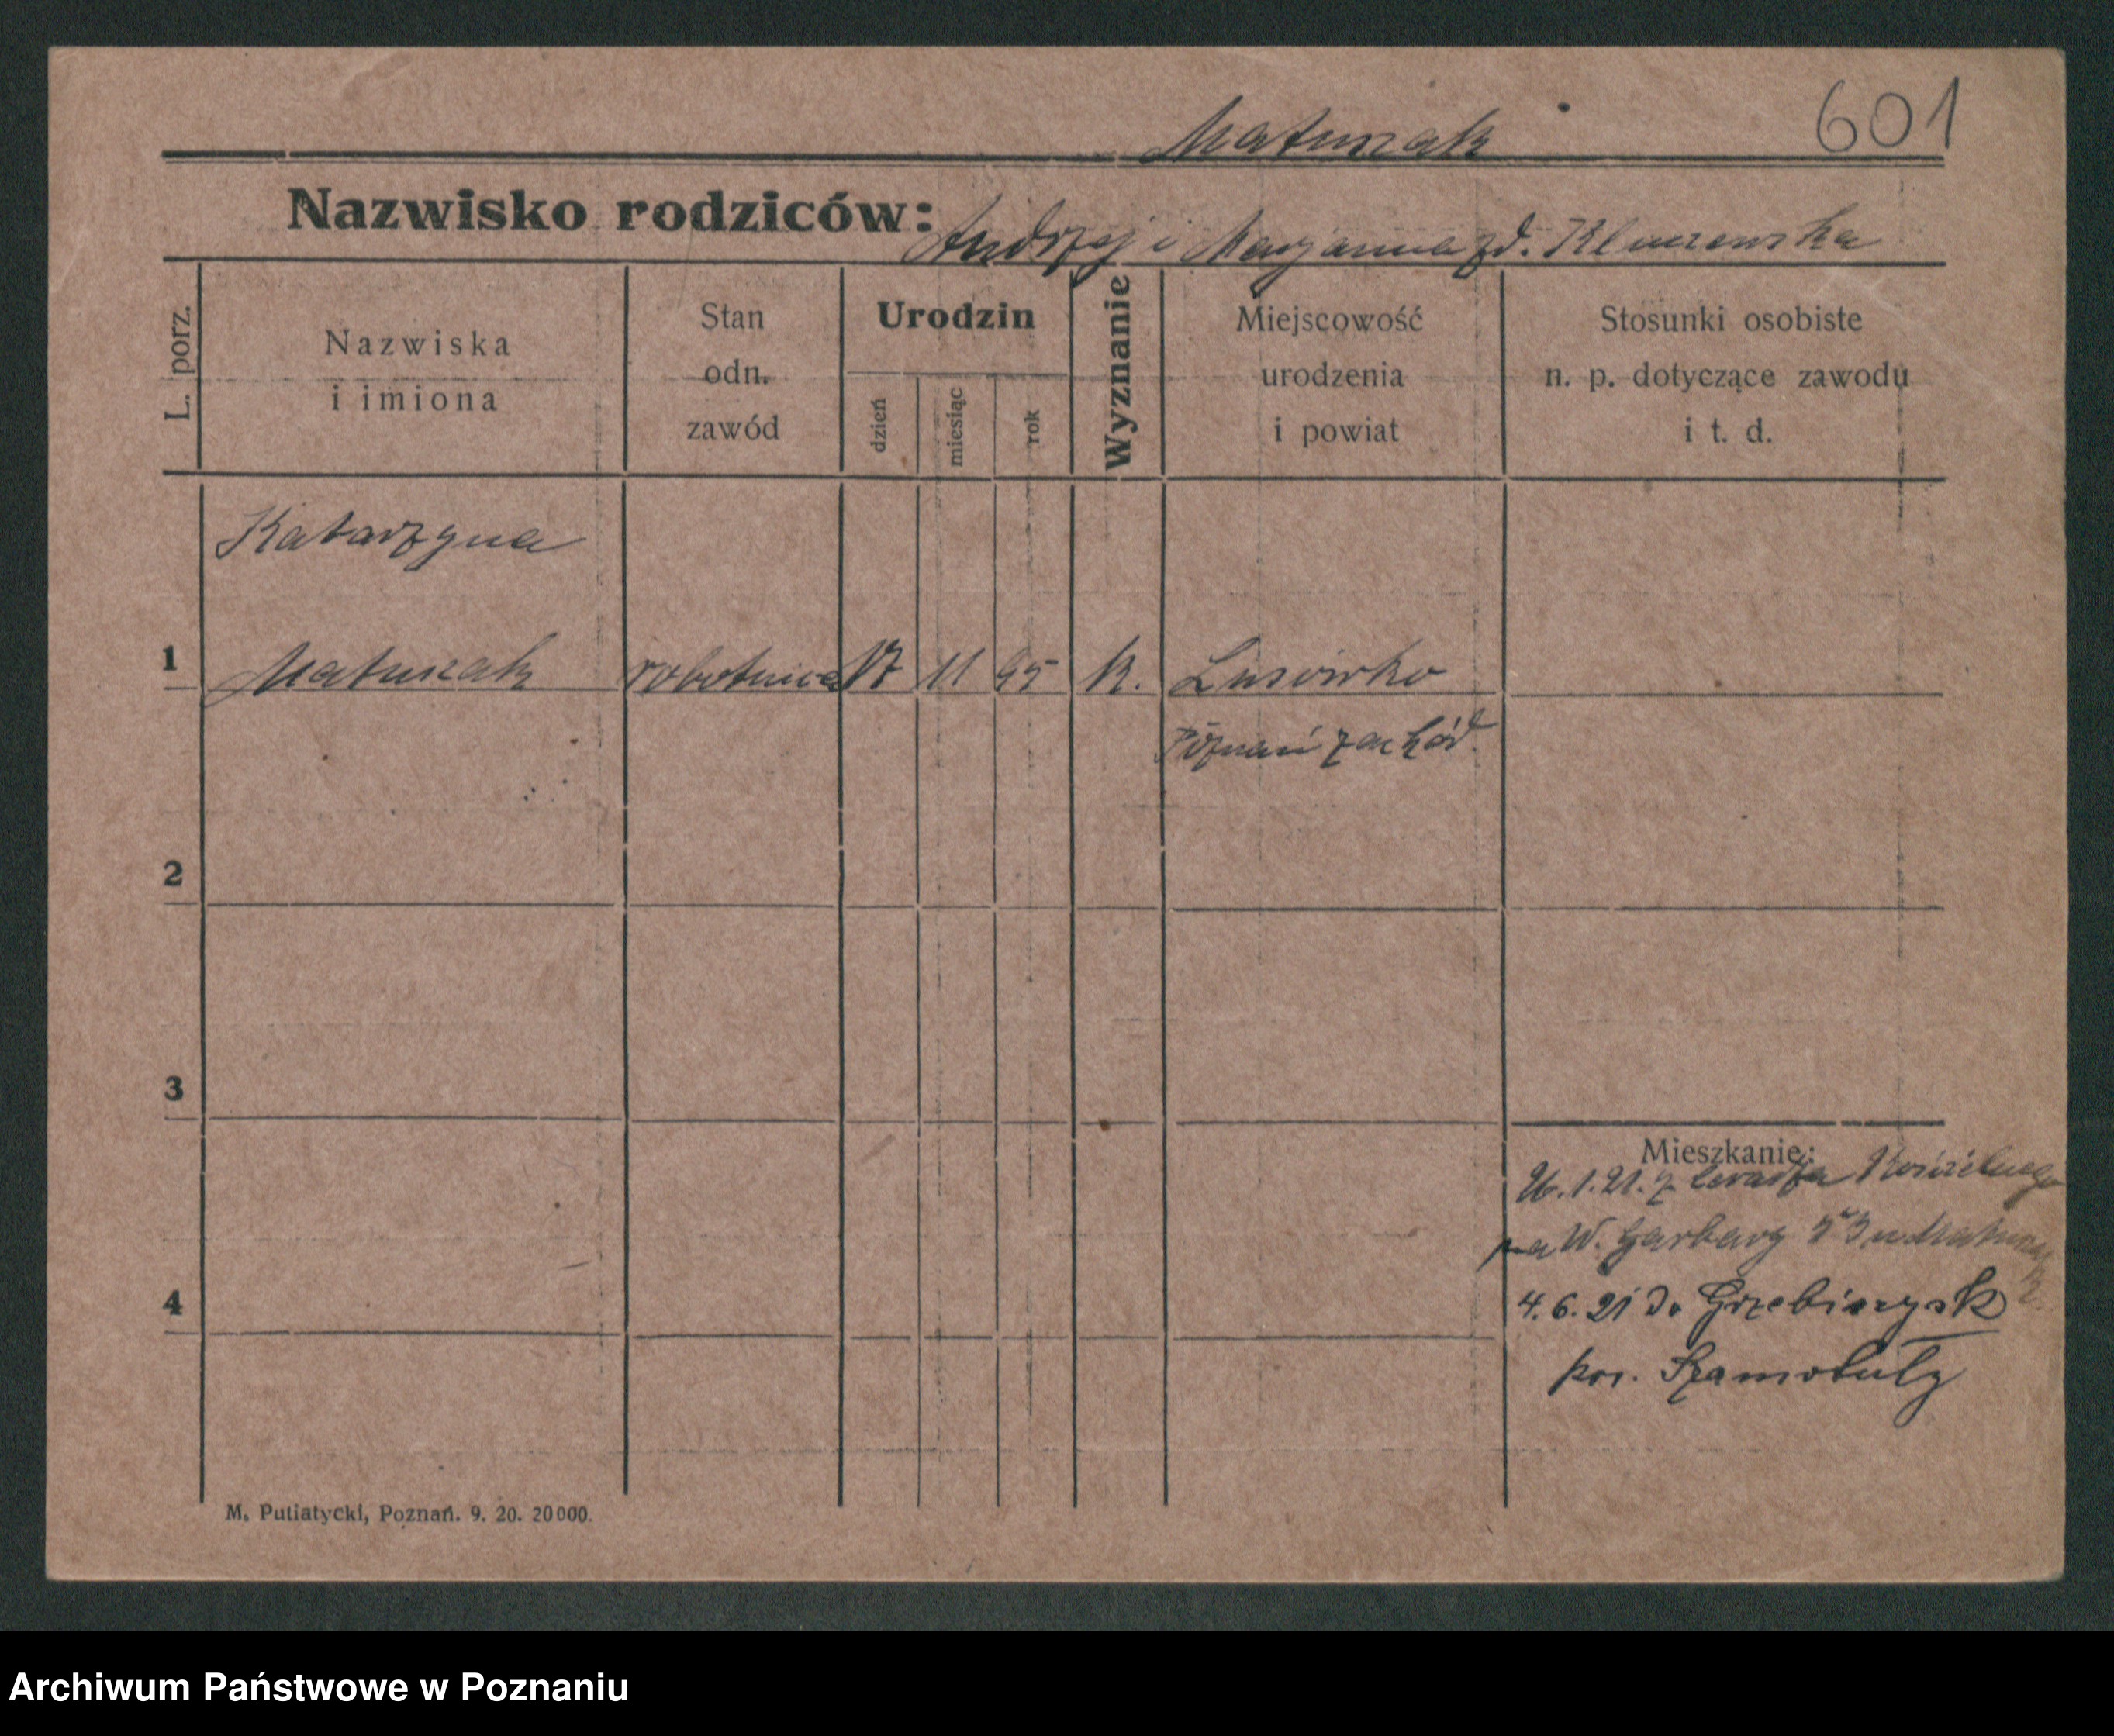 601
Matuszak
Nazwisko rodziców: Andrzej i Maryanna zd. Kluczewska
L. porz.
Nazwiska
i imiona
Stan
odn.
zawód
Urodzin
dzień
miesiąc
rok
Wyznanie
Miejscowość
urodzenia
i powiat
Stosunki osobiste
n. p. dotyczące zawodu
i t. d.
Katarzyna
1 Matuszak robotnica 17 11 95 k. Lusówko
Poznań zachód.
2
3
Mieszkanie:
26.1.21. z
na W. Garbary 53 u Matuszak
4 4.6.21 do Grzebinysk
pow. Szamotuły
M. Putiatycki, Poznań. 9. 20. 20000.
Archiwum Państwowe w Poznaniu